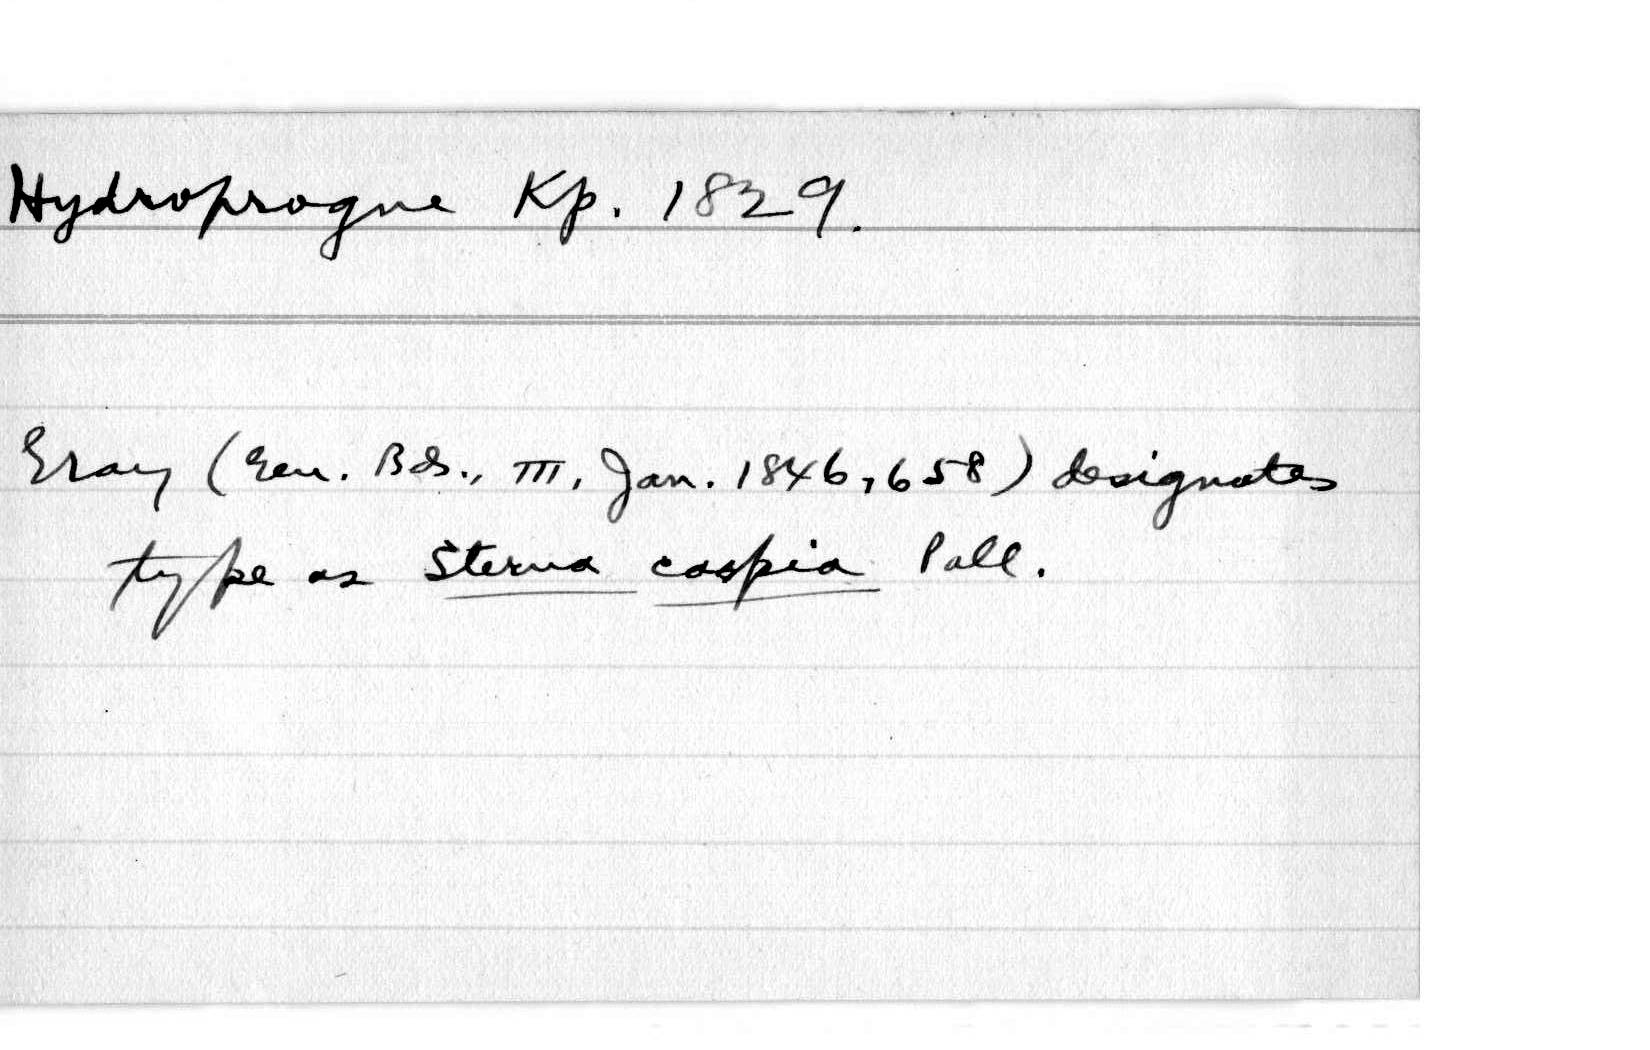 Hydroprogne Kp. 1829.
Gray (Gen. Bds., III, Jan. 1846, 658) designates
type as Sterna caspia Pall.